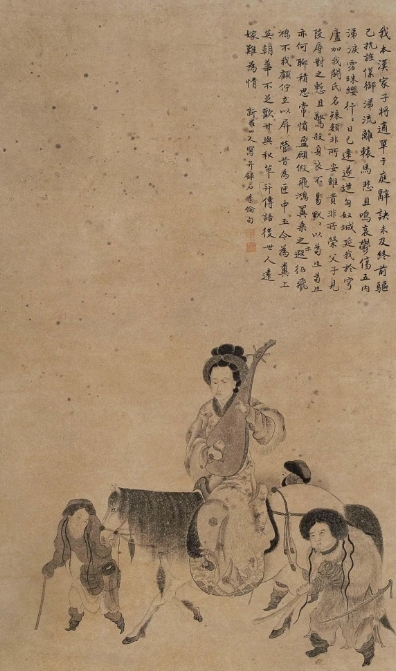 我本漢家子將適單于庭辭訣未及終前驅
已抗旌僕御涕流離轅馬悲且鳴哀鬱傷五內
涕淚霑珠纓行〻日已遠遂造匈奴城延我於穹
廬加我閼氏名殊類非所安雖貴非所榮父子見
陵辱對之慙且驚殺身良不易默〻以苟生苟生
亦何聊積思常憤盈願假飛鴻翼乘之以遐征飛
鴻不我顧佇立以屏營昔為匣中玉今為糞上
英朝華不足歡甘與秋草并傳語後世人遠
嫁難為情 新羅山人寫并錄石季倫句